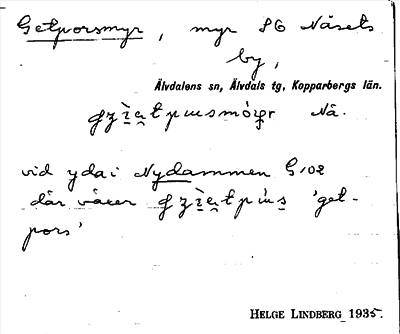 Getporsmyr, myr SO Nåsets
by,
Älvdalens sn, Älvdals tg, Kopparbergs län.
Nå.
vid ydai Nydammen G102
där växer 'get-
pors'
HELGE LINDBERG 1935.